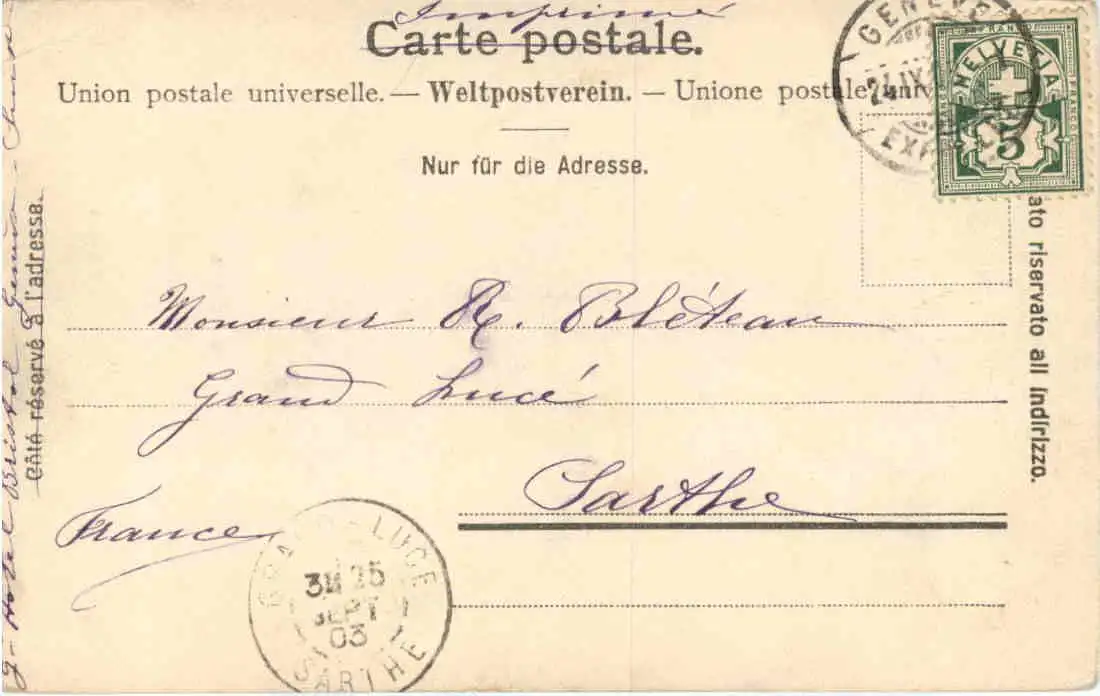 Imprimé
Carte postale.
Union postale universelle. — Weltpostverein. — Unione postale univ
Nur für die Adresse.
GENÈVE
24.IX
EXP
FRANCO
HELVETIA
FRANCO
5
Côté réservé à l'adresse.
Hotel Bristol Genève
ato riservato all indirizzo.
Monsieur R. Bléteau
Grand Lucé
Sarthe
France
GRAND-LUCE
3E 25
SEPT
03
SARTHE